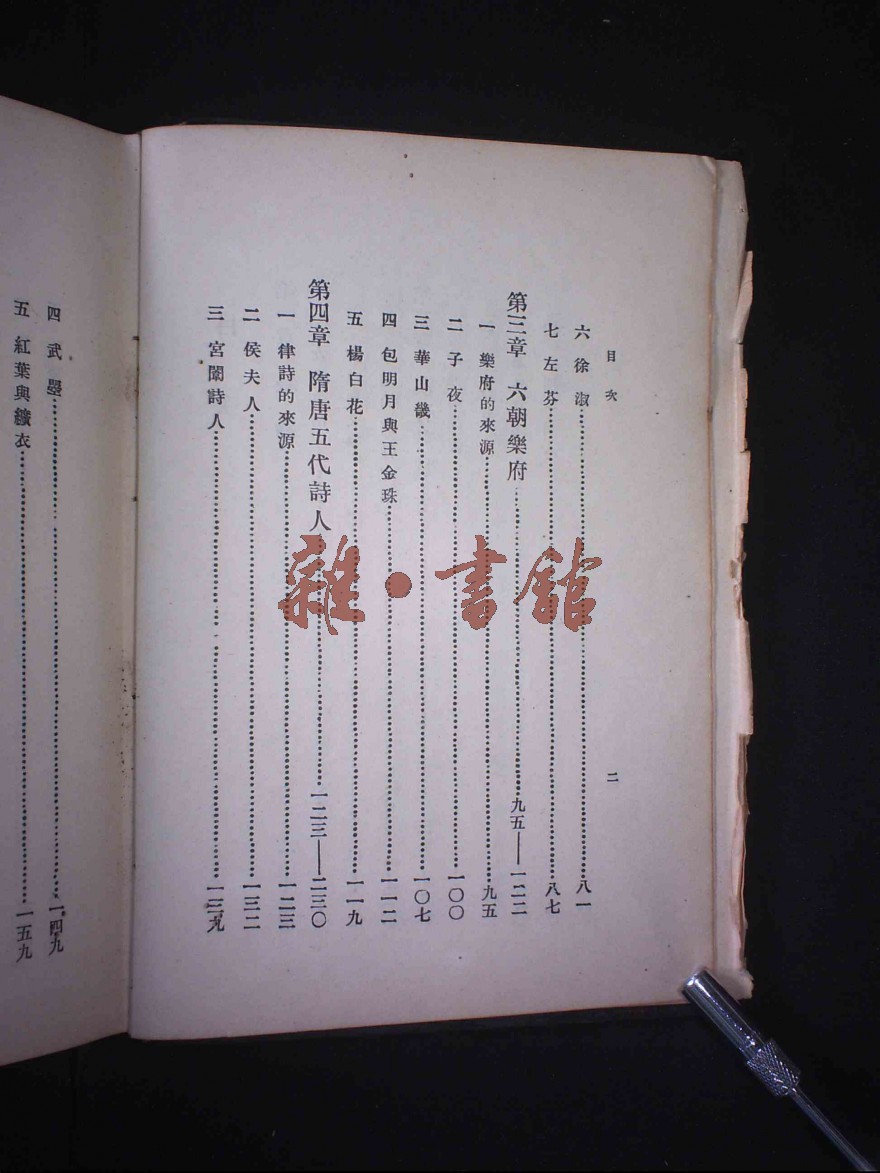 目次
二
六 徐淑 八一
七 左芬 八七
第三章 六朝樂府 九五——一二二
一 樂府的來源 九五
二 子夜 一〇〇
三 華山畿 一〇七
四 包明月與王金珠 一一二
五 楊白花 一一九
第四章 隋唐五代詩人 一二三——二三〇
一 律詩的來源 一二三
二 侯夫人 一三二
三 宮闈詩人 一三九
四 武曌 一四九
五 紅葉與纊衣 一五九
雜·書館